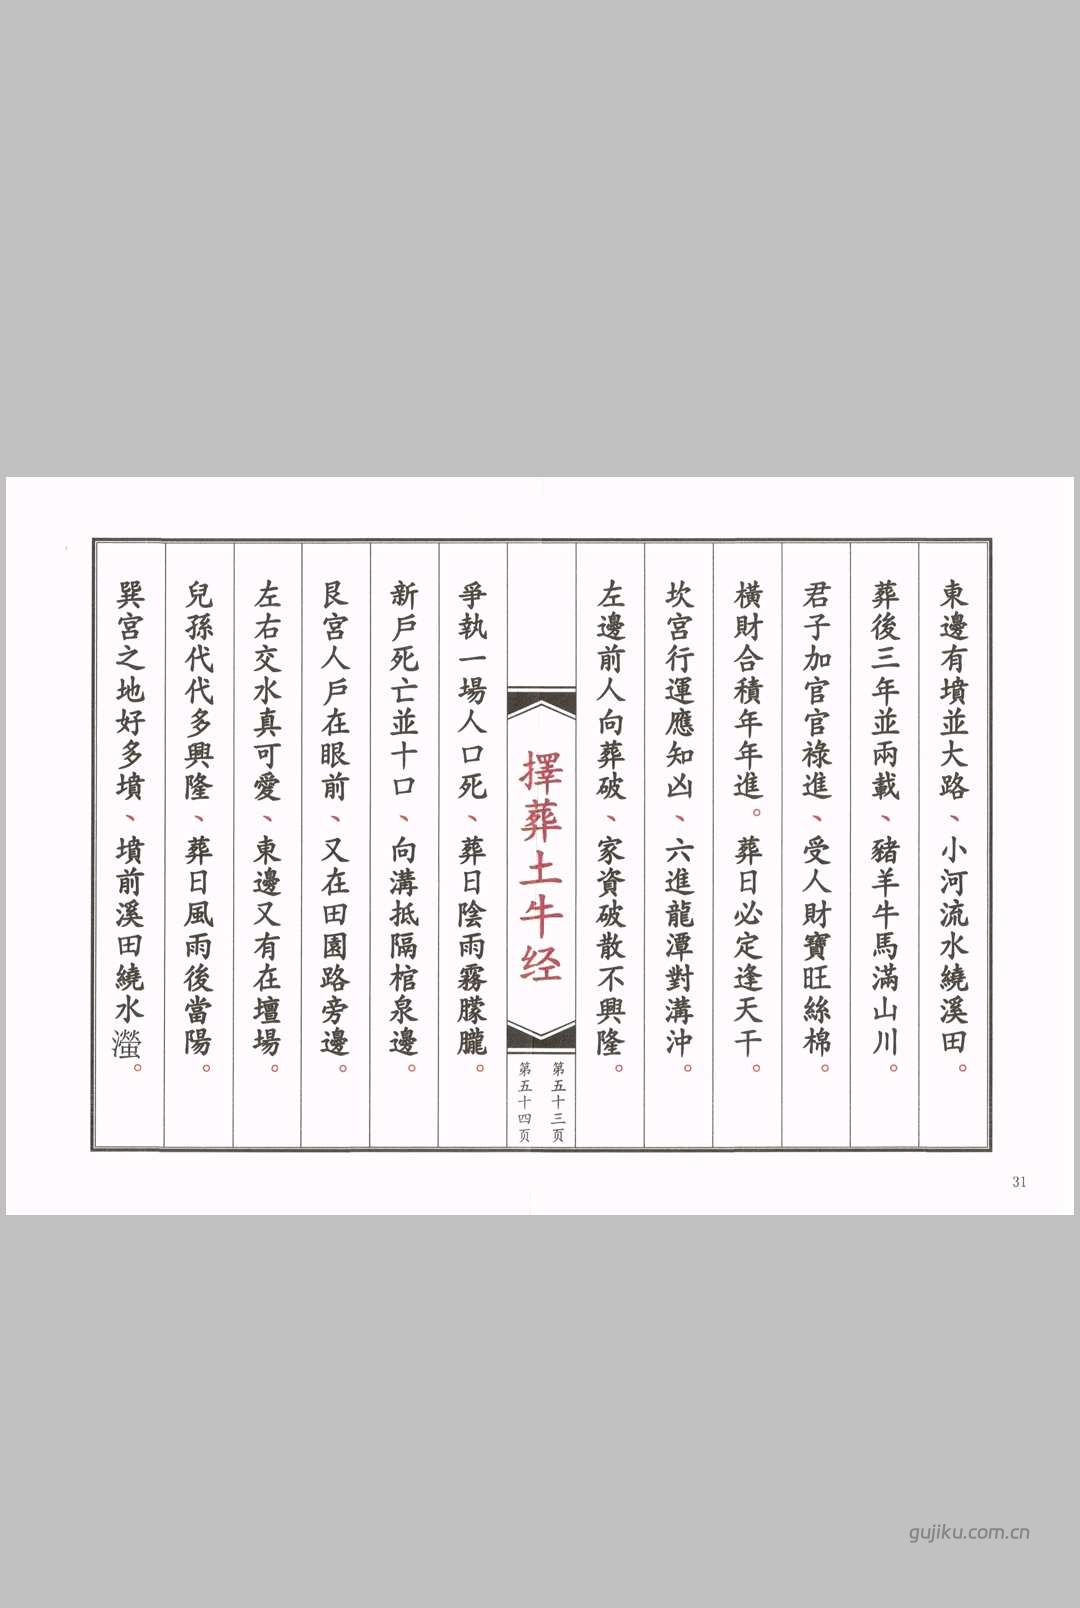 東邊有墳並大路、小河流水繞溪田。
葬後三年並兩載、豬羊牛馬滿山川。
君子加官官祿進、受人財寶旺絲棉。
橫財合積年年進。葬日必定逢天干。
坎宮行運應知凶、六進龍潭對溝沖。
左邊前人向葬破、家資破散不興隆。
擇葬土牛经
第五十三页
第五十四页
爭執一場人口死、葬日陰雨霧朦朧。
新戶死亡並十口、向溝抵隔棺泉邊。
艮宮人戶在眼前、又在田園路旁邊。
左右交水真可愛、東邊又有在壇場。
兒孫代代多興隆、葬日風雨後當陽。
巽宮之地好多墳、墳前溪田繞水瀯。
31
gujiku.com.cn